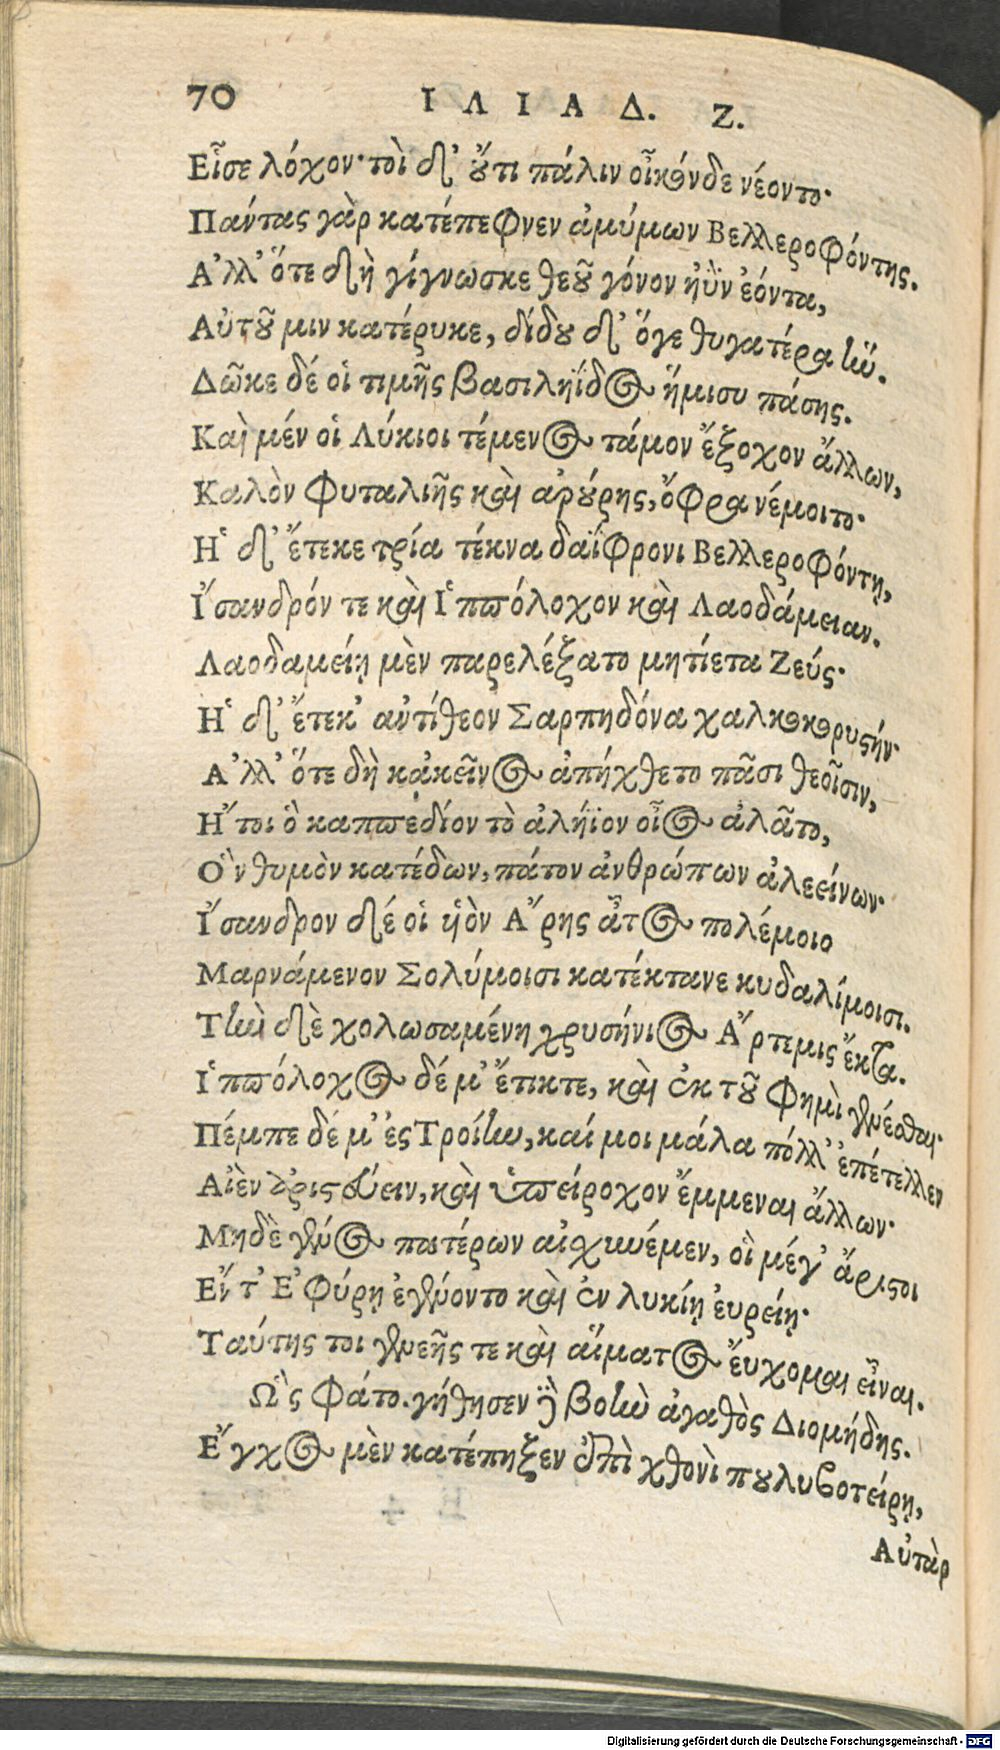 70 ΙΛΙΑΔ. Ζ.
Εἷσε λόχον· τοὶ δ' οὔτι πάλιν οἶκόνδε νέοντο·
Πάντας γὰρ κατέπεφνεν ἀμύμων Βελλεροφόντης.
Ἀλλ' ὅτε δὴ γίγνωσκε θεοῦ γόνον ἠῢν ἐόντα,
Αὐτοῦ μιν κατέρυκε, δίδου δ' ὅγε θυγατέρα ἥν.
Δῶκε δέ οἱ τιμῆς βασιληΐδος ἥμισυ πάσης.
Καὶ μέν οἱ Λύκιοι τέμενος τάμον ἔξοχον ἄλλων,
Καλὸν φυταλιῆς καὶ ἀρούρης, ὄφρα νέμοιτο·
Ἡ δ' ἔτεκε τρία τέκνα δαΐφρονι Βελλεροφόντῃ,
Ἴσανδρόν τε καὶ Ἱππόλοχον καὶ Λαοδάμειαν.
Λαοδαμείῃ μὲν παρελέξατο μητίετα Ζεύς·
Ἡ δ' ἔτεκ' ἀντίθεον Σαρπηδόνα χαλκοκορυστήν·
Ἀλλ' ὅτε δὴ κἀκεῖνος ἀπήχθετο πᾶσι θεοῖσιν,
Ἤτοι ὁ καππεδίον τὸ ἀλήϊον οἶος ἀλᾶτο,
Ὃν θυμὸν κατέδων, πάτον ἀνθρώπων ἀλεείνων·
Ἴσανδρον δέ οἱ ὑὸν Ἄρης ἆτος πολέμοιο
Μαρνάμενον Σολύμοισι κατέκτανε κυδαλίμοισι.
Τὴν δὲ χολωσαμένη χρυσήνιος Ἄρτεμις ἔκτα.
Ἱππόλοχος δέ μ' ἔτικτε, καὶ ἐκ τοῦ φημὶ γενέσθαι·
Πέμπε δέ μ' ἐς Τροίην, καί μοι μάλα πόλλ' ἐπέτελλεν
Αἰὲν ἀριστεύειν, καὶ ὑπείροχον ἔμμεναι ἄλλων·
Μηδὲ γένος πατέρων αἰχυνέμεν, οἳ μέγ' ἄριστοι
Ἔν τ' Ἐφύρῃ ἐγένοντο καὶ ἐν λυκίῃ ἐυρείῃ·
Ταύτης τοι γενεῆς τε καὶ αἵματος ἔυχομαι εἶναι.
Ὣς φάτο. γήθησεν δὲ βοὴν ἀγαθὸς Διομήδης.
Ἔγχος μὲν κατέπηξεν ἐπὶ χθονὶ πουλυβοτείρῃ,
Αὐτὰρ
Digitalisierung gefördert durch die Deutsche Forschungsgemeinschaft - DFG